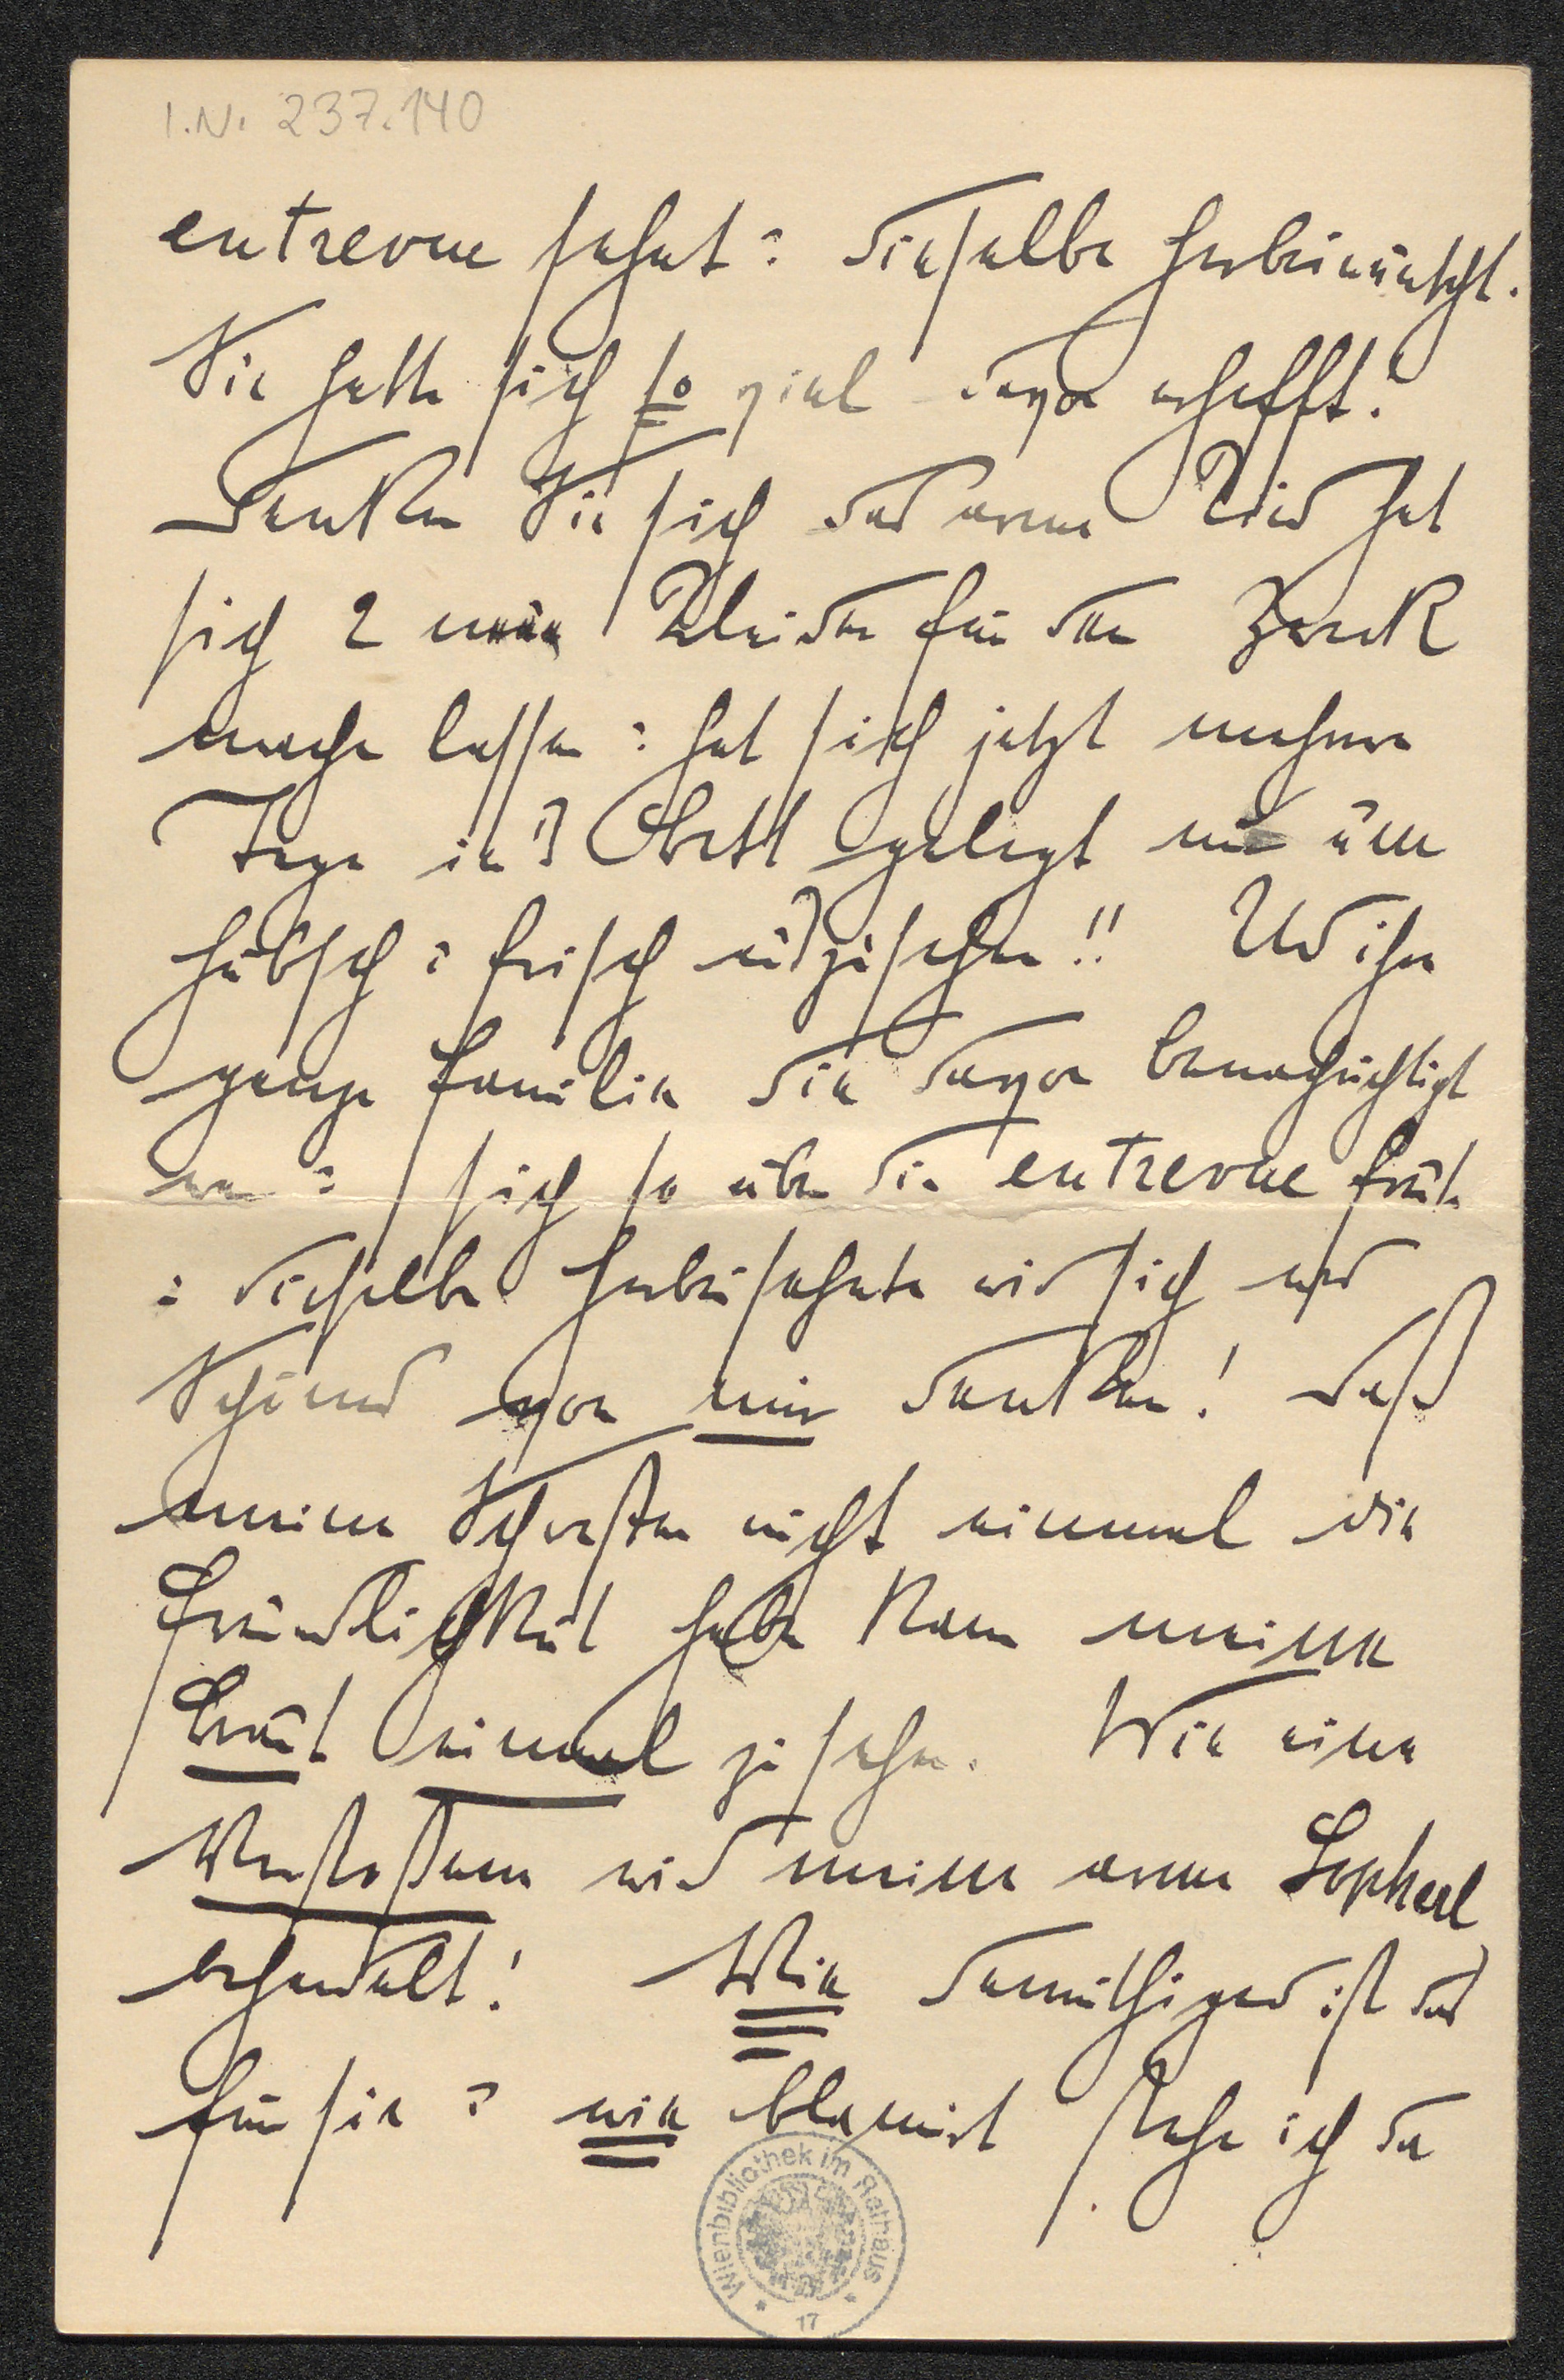 I.N. 237.140
entrevue sehnt u dieselbe herbeiwünscht.
Sie hatte sich so viel davon erhofft!
Denken Sie sich das arme Kind hat
sich 2 neue Kleider für den Zweck
machen lassen u hat sich jetzt mehrere
Tage in's Bett gelegt nur um
hübsch u frisch auszusehen!! Und ihre
ganze Familie die davon benachrichtigt
war u sich so über die entrevue freute
u dieselbe herbeisehnte wird sich was
Schönes von mir denken! daß
meine Schwester nicht einmal die
Freundlichkeit haben kann meine
Braut einmal zu sehen. Wie eine
Verstoßene wird meine arme Sopherl
behandelt! Wie demüthigend ist das
für sie u wie blamirt stehe ich da
Wienbibliothek im Rathaus
17